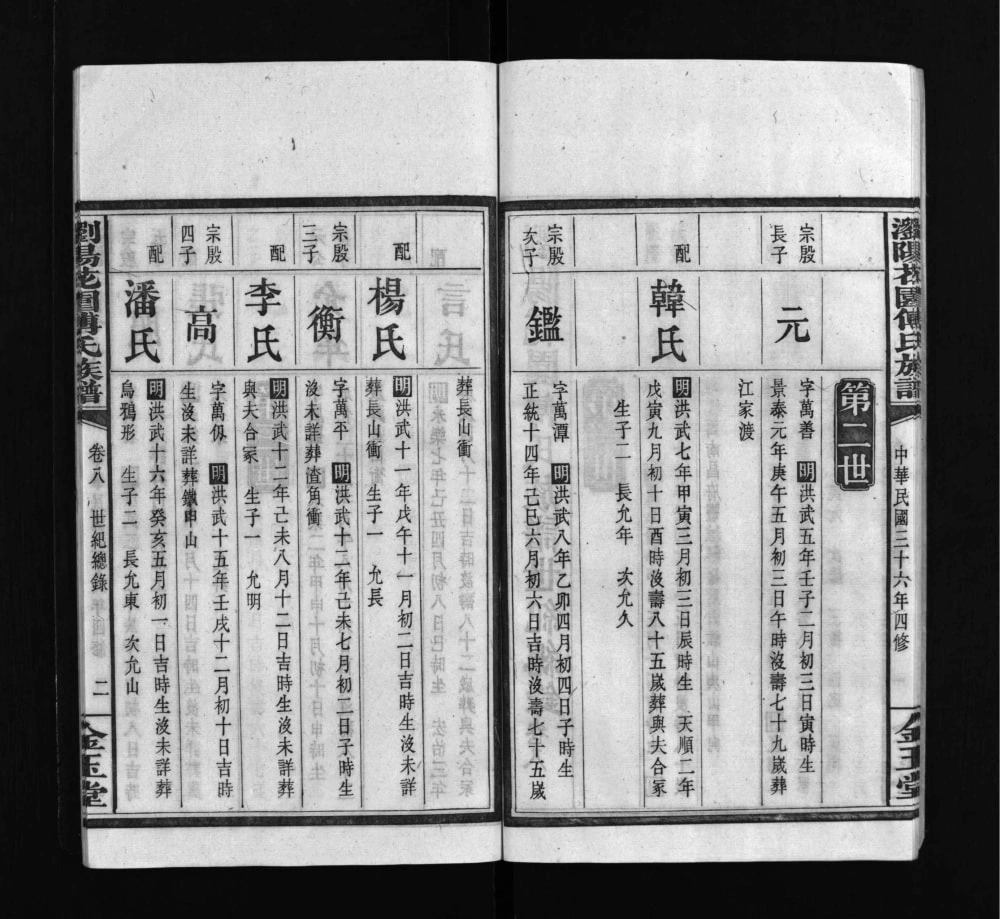 瀏陽花園傅氏族譜
中華民國三十六年四修
金玉堂
第二世
宗殷
長子
元
字萬善 明洪武五年壬子二月初三日寅時生
景泰元年庚午五月初三日午時沒壽七十九歲葬
江家渡
配
韓氏
明洪武七年甲寅三月初三日辰時生 天順二年
戊寅九月初十日酉時沒壽八十五歲葬與夫合冢
生子二 長允年 次允久
宗殷
次子
鑑
字萬潭 明洪武八年乙卯四月初四日子時生
正統十四年己巳六月初六日吉時沒壽七十五歲
葬長山衝
配
楊氏
明洪武十一年戊午十一月初二日吉時生沒未詳
葬長山衝 生子一 允長
宗殷
三子
衡
字萬平 明洪武十二年己未七月初二日子時生
沒未詳葬渣角衝
配
李氏
明洪武十二年己未八月十二日吉時生沒未詳葬
與夫合冢 生子一 允明
宗殷
四子
高
字萬仭 明洪武十五年壬戌十二月初十日吉時
生沒未詳葬鐵甲山
配
潘氏
明洪武十六年癸亥五月初一日吉時生沒未詳葬
烏鴉形 生子二 長允東 次允山
瀏陽花園傅氏族譜
卷八 世紀總錄
二
金玉堂